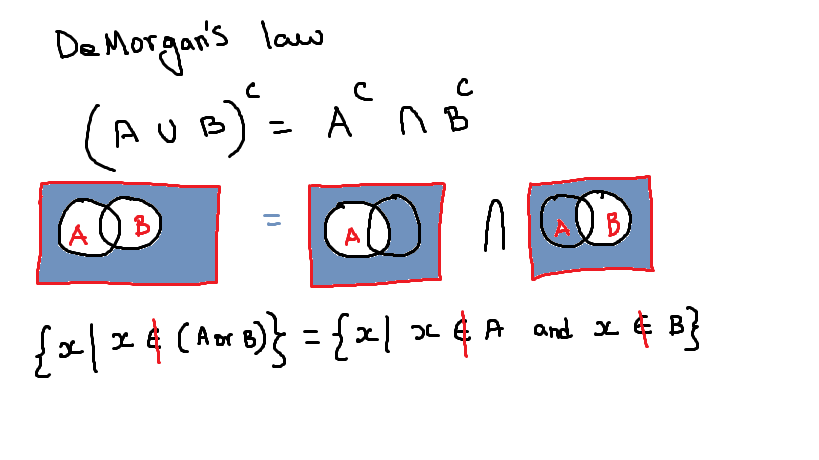 DeMorgan's law
(A ∪ B)ᶜ = Aᶜ ∩ Bᶜ
A B = A ∩ A B
{x | x ∉ (A or B)} = {x | x ∉ A and x ∉ B}